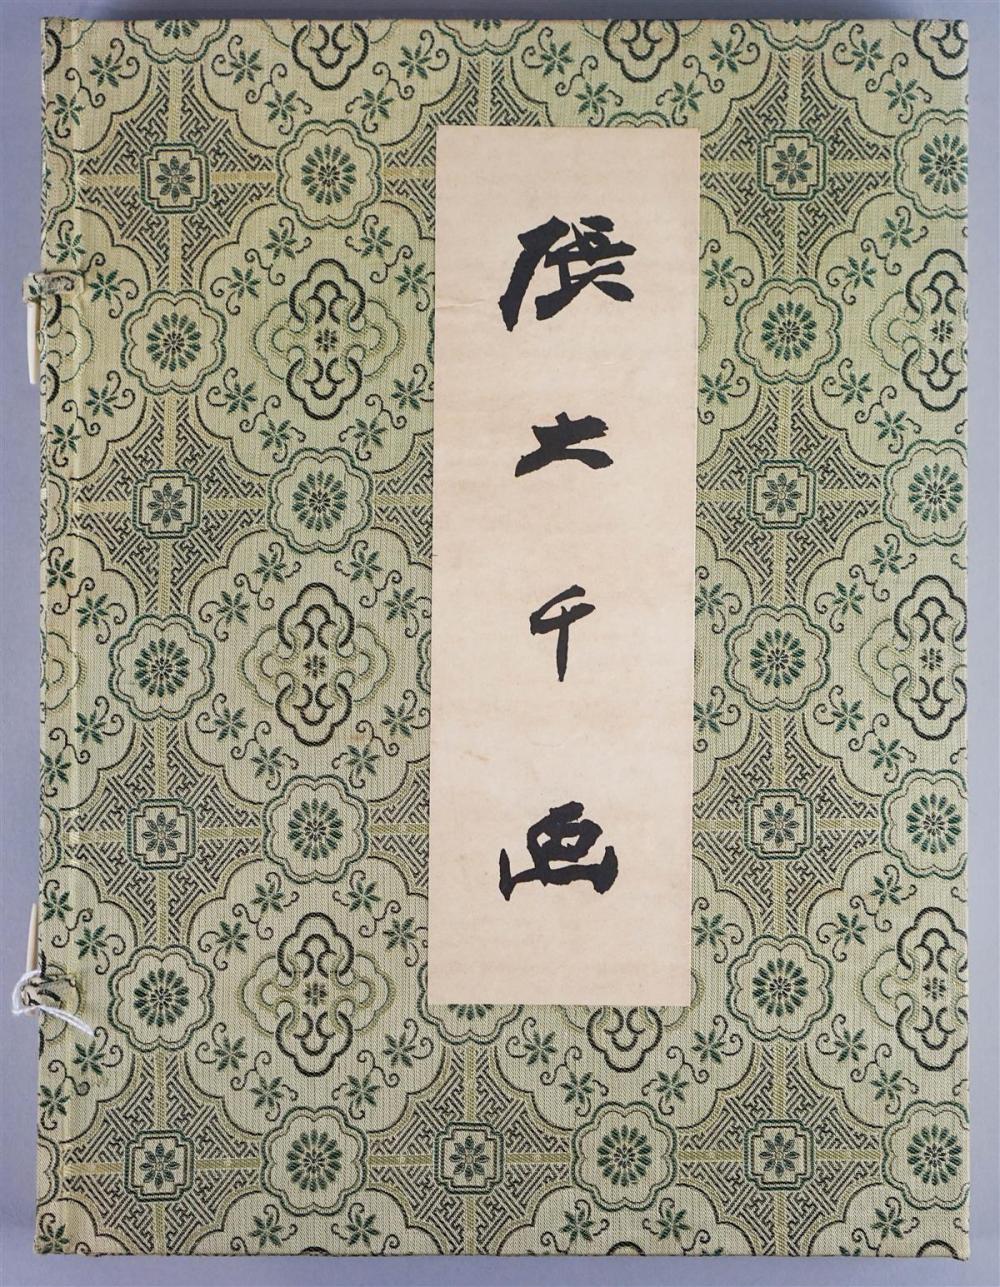 張大千画